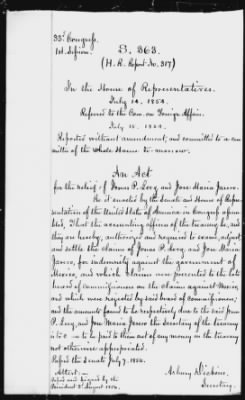 33d Congress,
1st Session.
S. 363.
(H. R. Report No. 317)
In the House of Representatives.
July 14, 1854.
Referred to the Com. on Foreign Affairs.
July 15, 1854.
Reported without amendment, and committed to a com
mittee of the Whole House to-morrow.
An Act
for the relief of Jonas P. Levy and Jose Maria Jarero.
Be it enacted by the Senate and House of Repre-
sentatives of the United States of America in Congress assem-
bled, That the accounting officers of the treasury be, and
they are hereby, authorized and required to examine, adjust,
and settle the claims of Jonas P. Levy, and Jose Maria
Jarero, for indemnity against the government of
Mexico, and which claims were presented to the late
board of commissioners on the claims against Mexico,
and which were rejected by said board of commissioners;
and the amounts found to be respectively due to the said Jonas
P. Levy, and Jose Maria Jarero the Secretary of the treasury
is to be paid to them out of any money in the treasury
not otherwise appropriated.
Passed the Senate July 7, 1854.
Attest:—
Asbury Dickins,
Secretary.
Passed and signed by the
President 3d August 1854.